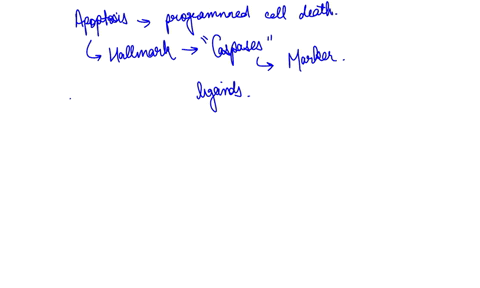 Apoptosis → programmed cell death.
↳ Hallmark → "Caspases"
↳ Marker.
ligands.